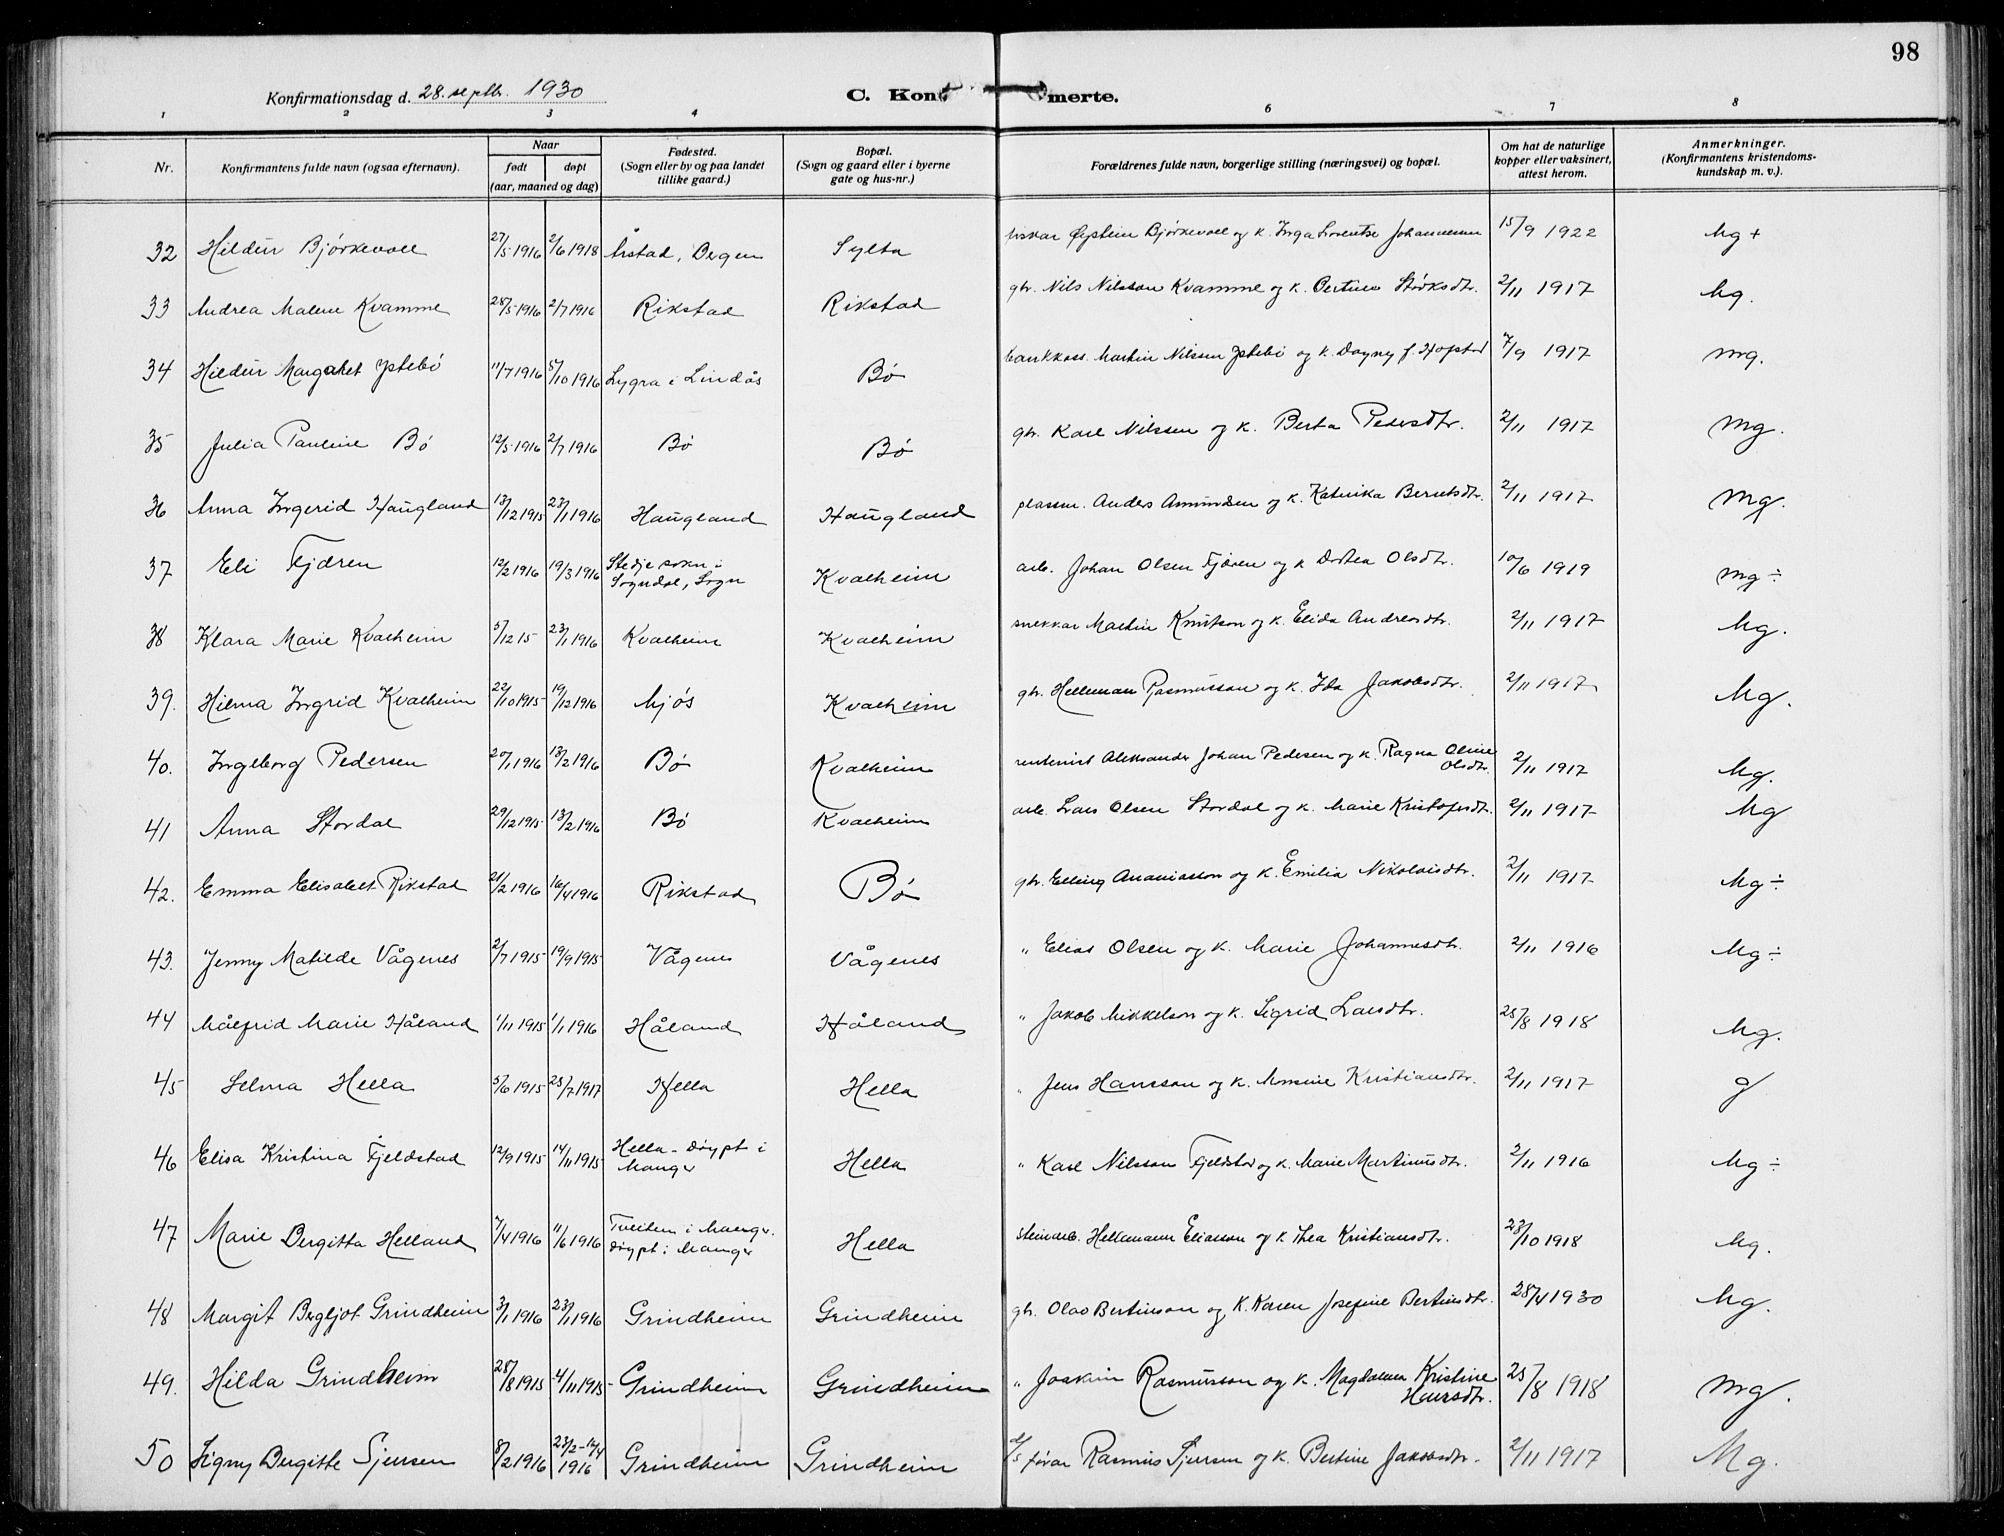 98
Konfirmationsdag d. 28. septbr. 1930
C. Kon merte.
1 2 3 4 6 7 8
Nr. Konfirmantens fulde navn (ogsaa efternavn). Naar født døpt (aar, maaned og dag) Fødested. (Sogn eller by og paa landet tillike gaard.) Bopæl. (Sogn og gaard eller i byerne gate og hus-nr.) Forældrenes fulde navn, borgerlige stilling (næringsvei) og bopæl. Om hat de naturlige kopper eller vaksinert, attest herom. Anmerkninger. (Konfirmantens kristendoms-kundskap m. v.).
32 Hildur Bjørkevoll 27/5 1916 2/6 1918 Årstad, Bergen Sylta fiskar Øystein Bjørkevoll og k. Inga Lorentse Johannesen 15/9 1922 Mg +
33 Andrea Malene Kvamme 28/5 1916 2/7 1916 Rikstad Rikstad gbr. Nils Nilsson Kvamme og k. Bertine Størksdtr. 2/11 1917 Mg.
34 Hildur Margret Ystebö 11/7 1916 5/10 1916 Lygra i Lindås Bö bankkass. Martin Nilssen Ystebö og k. Dagny f. Hopstad 7/9 1917 Mg.
35 Julia Pauline Bö 12/5 1916 2/7 1916 Bö Bö gbr. Karl Nilssen og k. Berta Pedersdtr. 2/11 1917 Mg.
36 Anna Ingerid Haugland 13/12 1915 23/1 1916 Haugland Haugland plassm. Anders Amundsen og k. Katrika Berntsdtr. 2/11 1917 Mg.
37 Eli Fjæren 12/2 1916 19/3 1916 Stedje sokn i Sogndal, Sogn Kvalheim arb. Johan Olsen Fjæren og k Dortea Olsdtr. 10/6 1919 Mg ÷
38 Klara Marie Kvalheim 5/12 15 23/1 1916 Kvalheim Kvalheim snekkar Martin Knutson og k. Elida Andreasdtr. 2/11 1917 Mg.
39. Hilma Ingrid Kvalheim 22/10 1915 19/12 1916 Mjös Kvalheim gbr. Helleman Rasmusson og k. Ida Jakobsdtr. 2/11 1917 Mg.
40. Ingeborg Pedersen 20/1 1916 13/2 1916 Bö Kvalheim rentenist Aleksander Johan Pedersen og k. Ragna Oline Olsdtr. 2/11 1917 Mg.
41 Anna Stordal 29/12 1915 13/2 1916 Bö Kvalheim arb. Lars Olsen Stordal og k. Marie Kristofersdtr. 2/11 1917 Mg
42. Emma Elisabet Rikstad 21/2 1916 16/4 1916 Rikstad Bö gbr. Elling Ananiasson og k. Emilia Nikolaisdtr. 2/11 1917 Mg ÷
43. Jenny Matilde Vågenes 2/7 1915 19/9 1915 Vågenes Vågenes " Elias Olsen og k. Marie Johannesdtr. 2/11 1916 Mg ÷
44 Målfrid Marie Håland 1/11 1915 1/1 1916 Håland Håland " Jakob Mikkelson og k. Sigrid Larsdtr. 25/8 1918 Mg.
45 Selma Hella 5/6 1915 25/7 1917 Hella Hella " Jens Hansson og k. Monsine Kristiansdtr. 2/11 1917 g
46 Elisa Kristina Fjeldstad 12/9 1915 14/11 1915 Hella - döypt i Manger Hella " Karl Nilsson Fjeldstad og k. Marie Martinusdtr. 2/11 1916 Mg ÷
47 Marie Bergitta Helland 7/4 1916 11/6 1916 Tveiten i Manger. döypt i Manger Hella steinarb. Hellemann Eliasson og k Thea Kristiansdtr. 23/10 1918 Mg.
48 Margit Bergljot Grindheim 3/1 1916 23/1 1916 Grindheim Grindheim gbr. Olav Bertinson og K. Karen Josefine Bertinsdtr. 28/4 1930 Mg.
49. Hilda Grindheim 28/8 1915 4/11 1915 Grindheim Grindheim " Joakim Rasmusson og k. Magdalena Kristine Hansdtr. 25/8 1918 Mg.
50 Signy Bergitte Sjursen 8/2 1916 23/2 - 16/4 1916 Grindheim Grindheim d/s förar Rasmus Sjursen og k. Bertine Jakobsdtr. 2/11 1917 Mg.